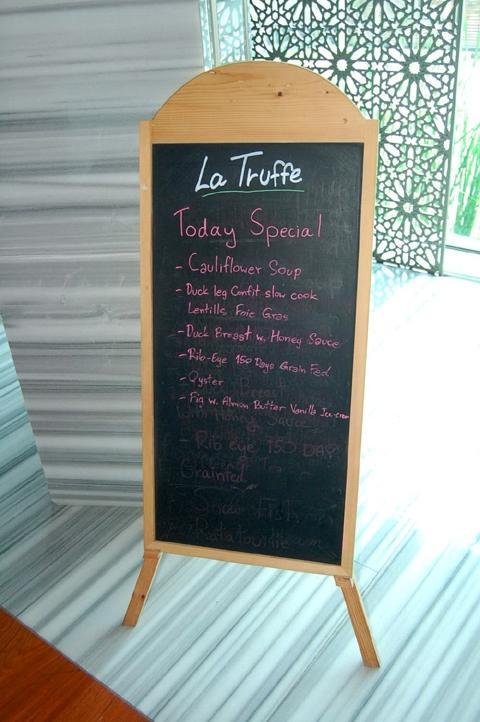 La Truffe
Today Special
- Cauliflower Soup
- Duck leg Confit slow cook
Lentills Foie Gras
- Duck Breast w. Honey Sauce
- Rib-Eye 150 Days Grain Fed
- Oyster
- Fig w. Almon Butter Vanilla Ice-cream
With Honey Sauce
- Rib eye 150 DAY
Grainted
Snow Fish
Ratatouille